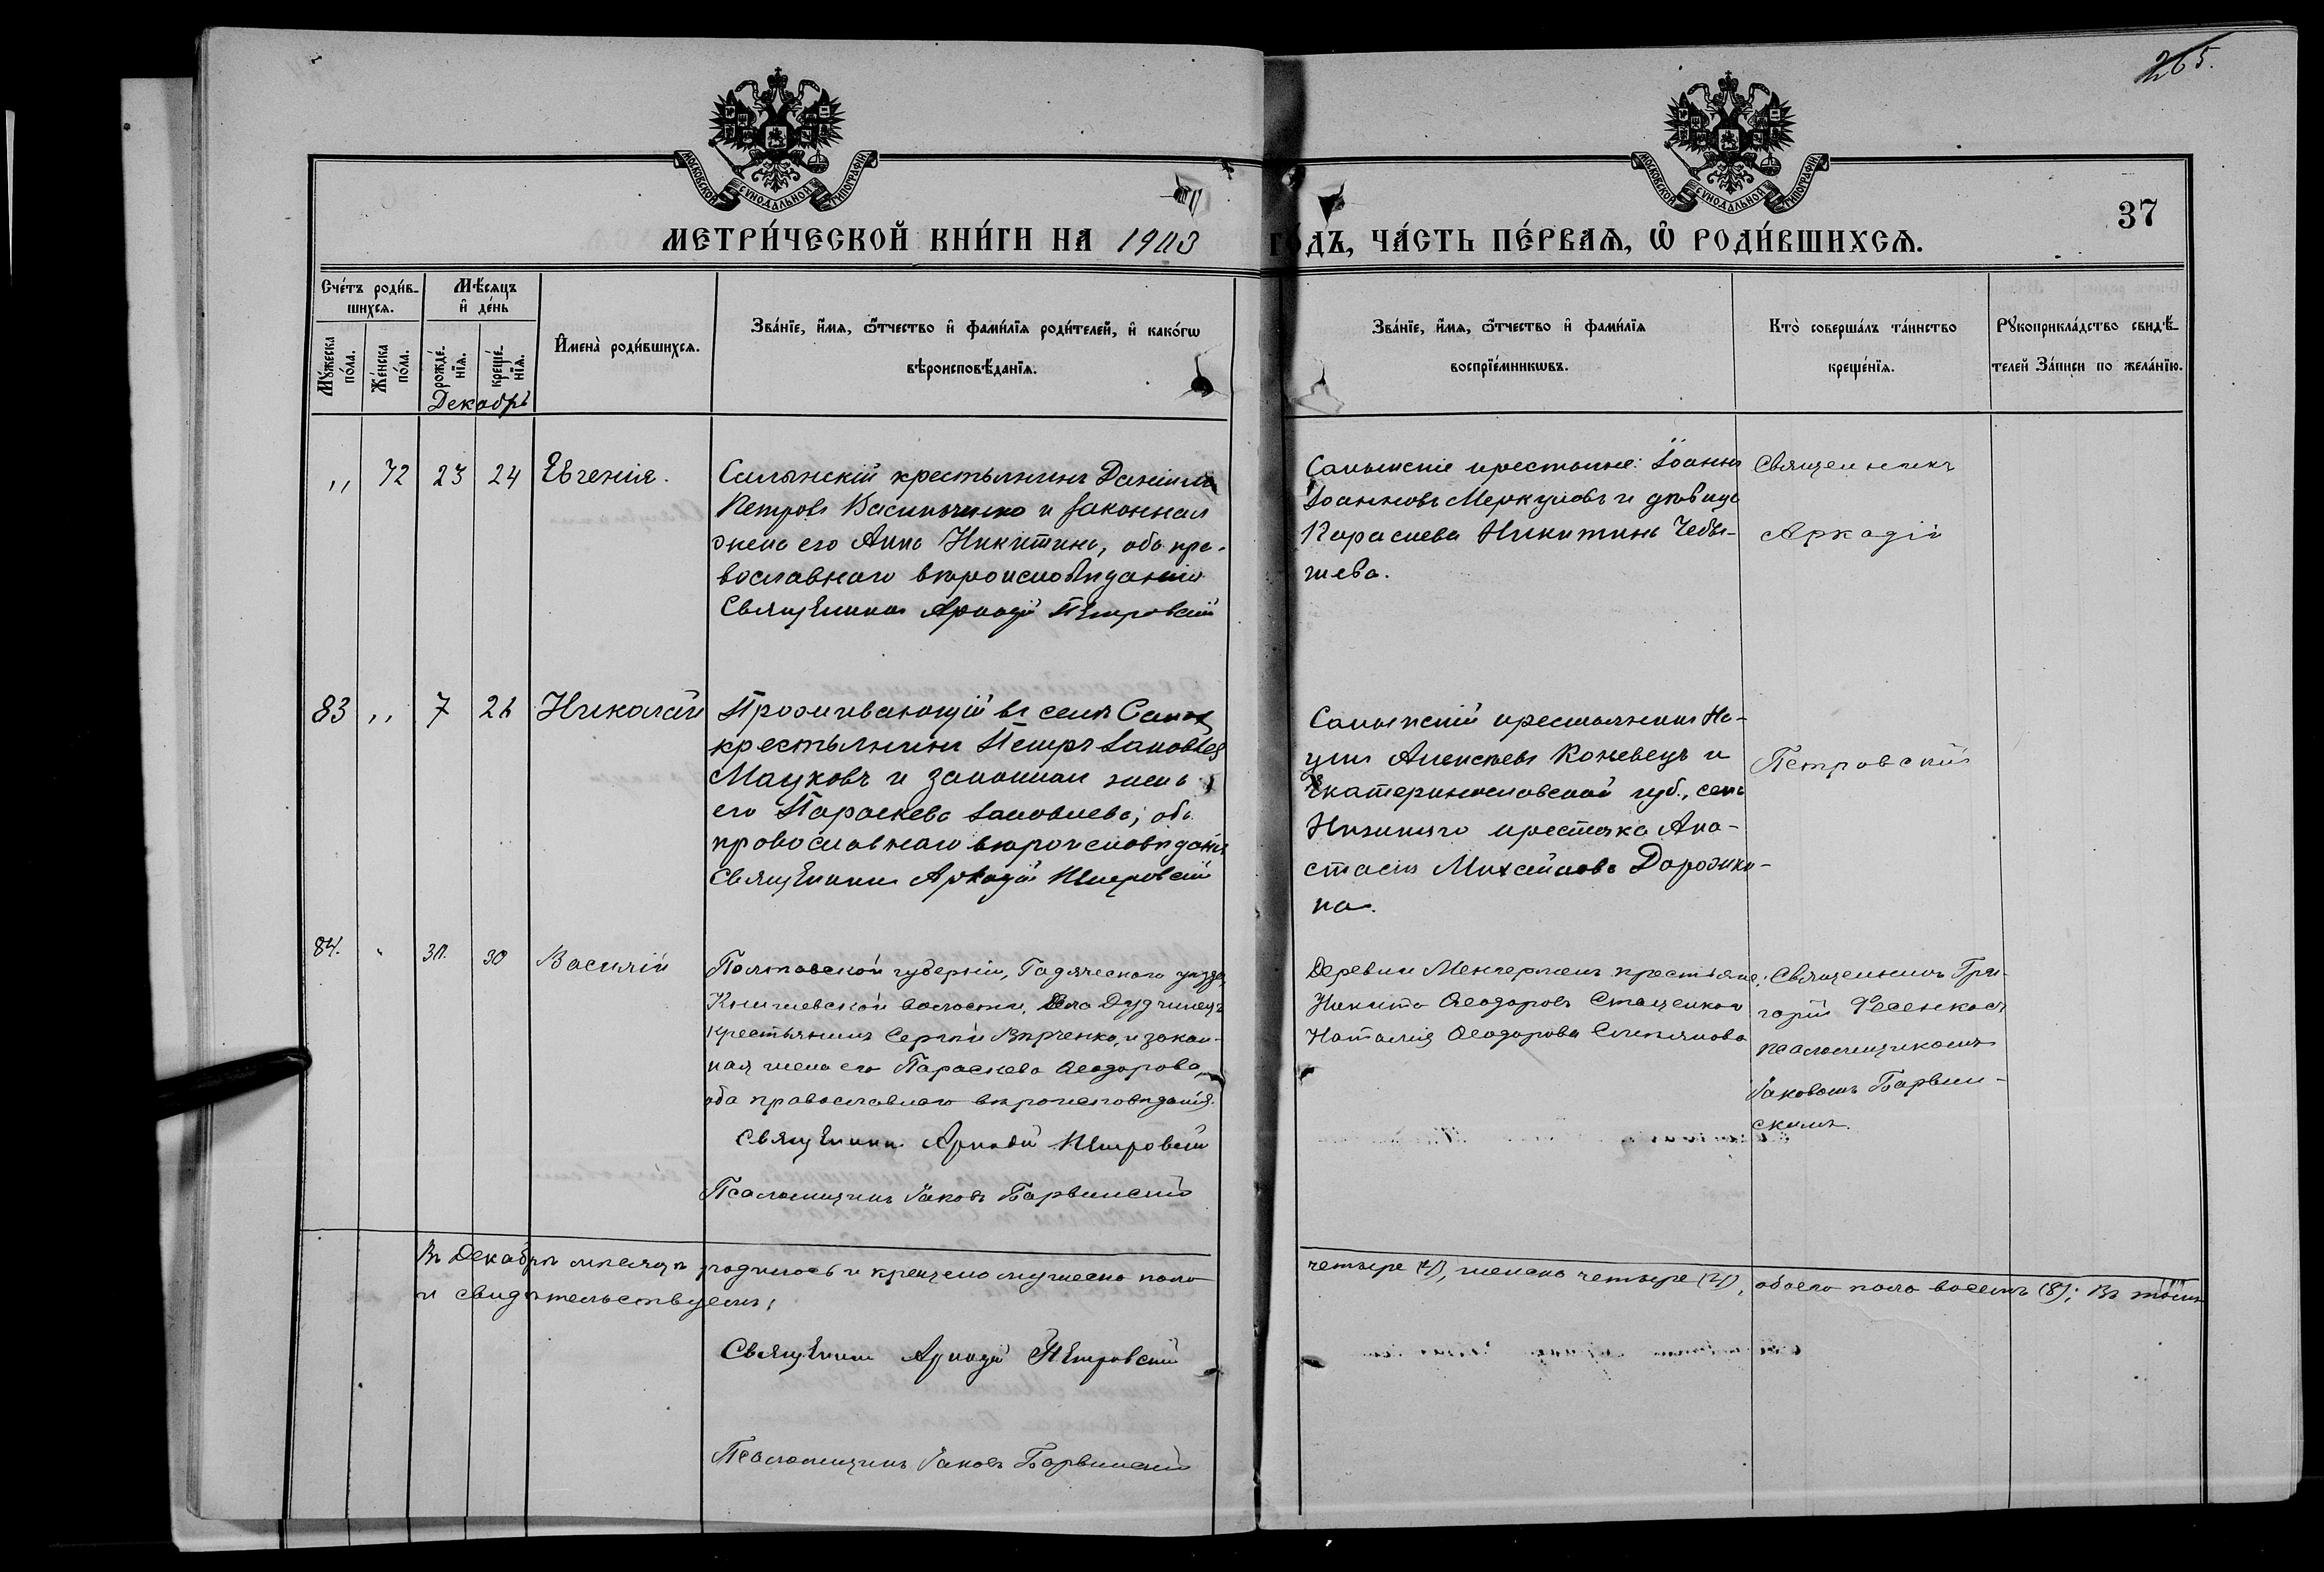 265.
МОСКОВСКОЙ СУНОДАЛЬНОЙ ТИПОГРАФІИ
МОСКОВСКОЙ СУНОДАЛЬНОЙ ТИПОГРАФІИ
37
МЕТРИ́ЧЕСКОЙ КНИ́ГИ НА 1903 ГО́ДЪ, ЧА́СТЬ ПЕ́РВАѦ, Ѡ҆ РОДИ́ВШИХСѦ.
Сче́тъ роди́в-
шихсѧ.
Мꙋжеска по́ла.
Же́нска по́ла.
Мѣ́сѧцъ
и҆ де́нь
рожде́-
нїѧ.
креще́-
нїѧ.
Декабрь
И҆мена̀ роди́вшихсѧ.
Зва́нїе, и҆́мѧ, ѻ҆́тчество и҆ фами́лїѧ роди́телей, и҆ како́гѡ
вѣроисповѣ́данїѧ.
Зва́нїе, и҆́мѧ, ѻ҆́тчество и҆ фами́лїѧ
воспрїе́мникѡвъ.
Кто̀ соверша́лъ та́инство
креще́нїѧ.
Рꙋкоприкла́дство свидѣ́-
телей За́писи по жела́нїю.
,, 72 23 24 Евгенія.
крестьянинъ Даніилъ
Петровъ Васильченко и законная
жена его Анна Никитина, оба пра-
вославнаго вѣроисповѣданія
Священникъ Аркадій Петровскій
крестьяне: Іоаннъ
Іоанновъ Меркуловъ и дѣвица
Параскева Никитина Чебы-
шева.
Священникъ
Аркадій
83 ,, 7 26 Николай
Проживающій въ селѣ
крестьянинъ Петръ Іаковлев
Мацковъ и законная жена
его Параскева Іаковлева; оба
православнаго вѣроисповѣданія
Священникъ Аркадій Петровскій
крестьянинъ На-
умъ Алексѣевъ Коневецъ и
Екатеринославской губ., села
крестьянка Ана-
стасія Михайлова Дорожки-
на.
Петровскій
84. " 30. 30 Василій
Полтавской губерніи, Гадяческаго уѣзда,
волости, села
крестьянинъ Сергій Вирченко, и закон-
ная жена его Параскева Ѳеодорова,
оба православнаго вѣроисповѣданія.
Священникъ Аркадій Петровскій
Псаломщикъ Іаковъ Барвинскій
Деревни крестьяне:
Никита Ѳеодоровъ Стаценко и
Наталія Ѳеодорова
Священникъ Гри-
горій Фесенко съ
псаломщикомъ
Іаковомъ Барвин-
скимъ.
Въ Декабрѣ мѣсяцѣ родилось и крещено мужеска пола четыре (4), женска четыре (4), обоего пола восемь (8); въ томъ
и свидѣтельствуемъ:
Священникъ Аркадій Петровскій
Псаломщикъ Іаковъ Барвинскій